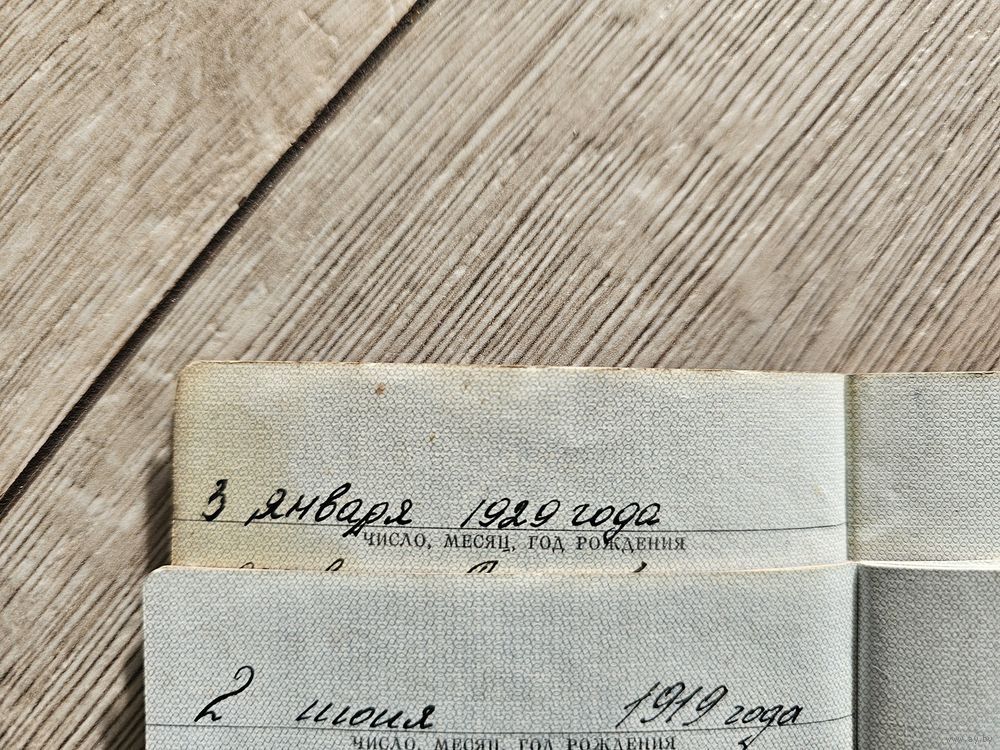 3 января 1929 года
ЧИСЛО, МЕСЯЦ, ГОД РОЖДЕНИЯ
2 июня 1919 года
ЧИСЛО, МЕСЯЦ, ГОД РОЖДЕНИЯ